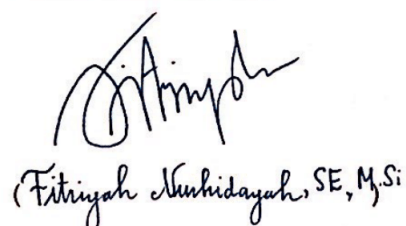 (Fitriyah Nurhidayah, SE, M.Si